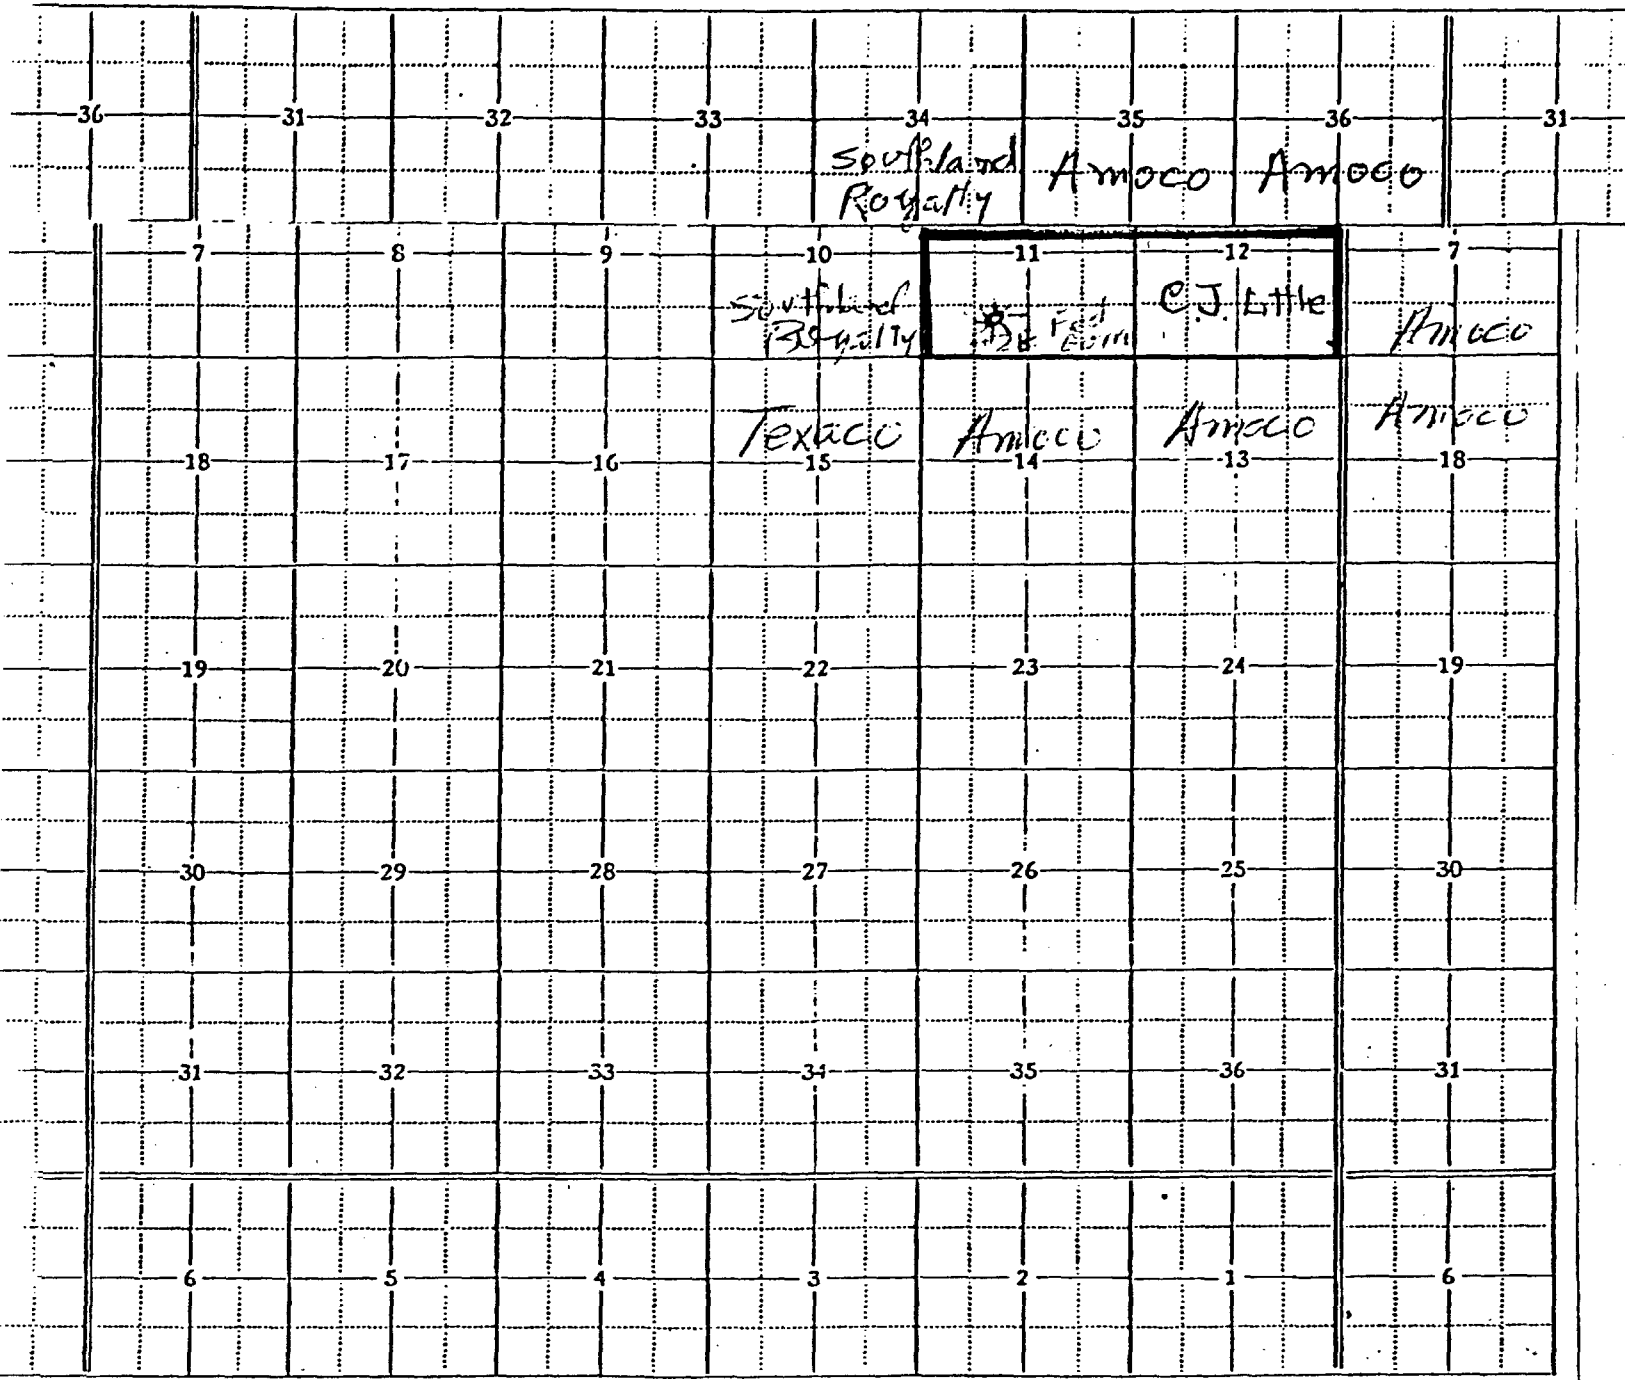 36 31 32 33 34 35 36 31
Southland Amoco Amoco
Royalty
7 8 9 10 11 12 7
Southland C.J. Little
Royalty Fed Com Amoco
Texaco Amoco Amoco Amoco
18 17 16 15 14 13 18
19 20 21 22 23 24 19
30 29 28 27 26 25 30
31 32 33 34 35 36 31
6 5 4 3 2 1 6